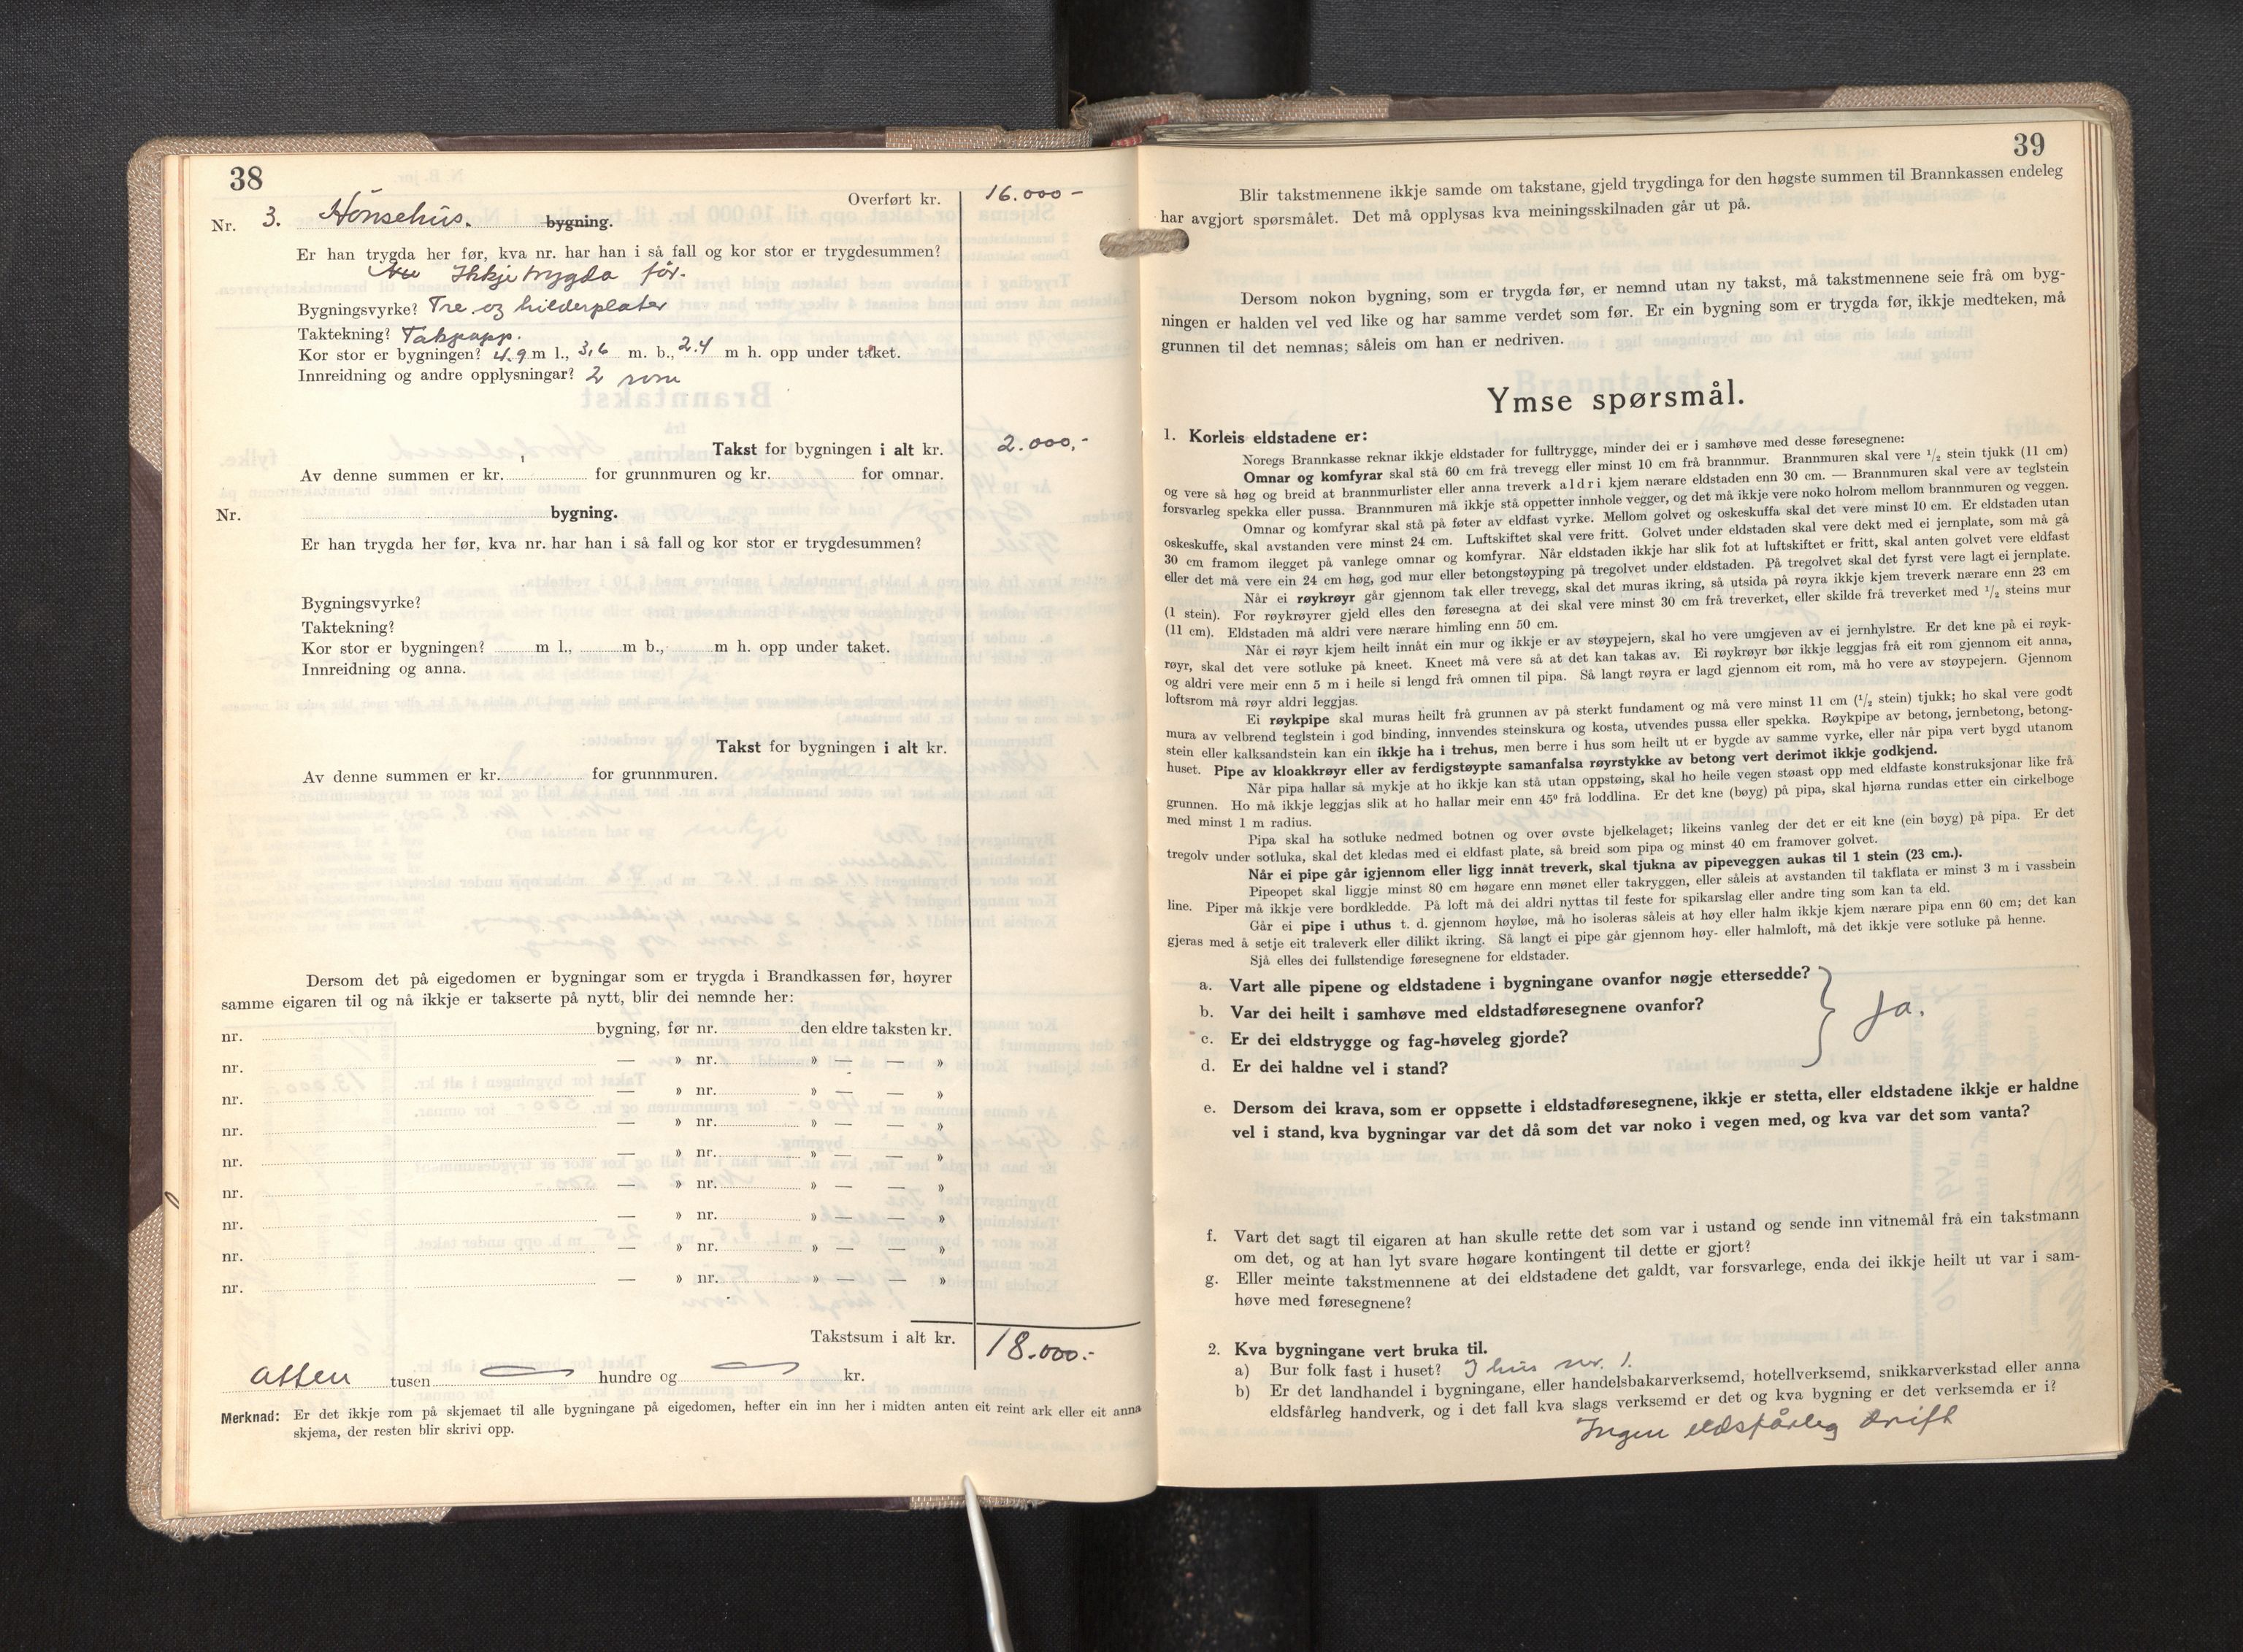 38
Overført kr. 16.000-
Nr. 3. Hønsehus. bygning.
Er han trygda her før, kva nr. har han i så fall og kor stor er trygdesummen?
Ikkje trygda før.
Bygningsvyrke? Tre og hilderplater
Taktekning? Takpapp.
Kor stor er bygningen? 4.9 m l., 3,6 m. b., 2.4 m h. opp under taket.
Innreidning og andre opplysningar? 2 rom
Takst for bygningen i alt kr. 2.000,-
Av denne summen er kr. for grunnmuren og kr. for omnar.
Nr. bygning.
Er han trygda her før, kva nr. har han i så fall og kor stor er trygdesummen?
Bygningsvyrke?
Taktekning?
Kor stor er bygningen? m l., m b., m h. opp under taket.
Innreidning og anna.
Takst for bygningen i alt kr.
Av denne summen er kr. for grunnmuren.
Dersom det på eigedomen er bygningar som er trygda i Brandkassen før, høyrer
samme eigaren til og nå ikkje er takserte på nytt, blir dei nemnde her:
nr. bygning, før nr. den eldre taksten kr.
nr. — » nr. » — — »
nr. — » nr. » — — »
nr. — » nr. » — — »
nr. — » nr. » — — »
nr. — » nr. » — — »
nr. — » nr. » — — »
nr. — » nr. » — — »
nr. — » nr. » — — »
Takstsum i alt kr. 18.000.-
atten tusen hundre og kr.
Merknad: Er det ikkje rom på skjemaet til alle bygningane på eigedomen, hefter ein inn her i midten anten eit reint ark eller eit anna
skjema, der resten blir skrivi opp.
39
Blir takstmennene ikkje samde om takstane, gjeld trygdinga for den høgste summen til Brannkassen endeleg
har avgjort spørsmålet. Det må opplysas kva meiningsskilnaden går ut på.
Dersom nokon bygning, som er trygda før, er nemnd utan ny takst, må takstmennene seie frå om byg-
ningen er halden vel ved like og har samme verdet som før. Er ein bygning som er trygda før, ikkje medteken, må
grunnen til det nemnas; såleis om han er nedriven.
Ymse spørsmål.
1. Korleis eldstadene er:
Noregs Brannkasse reknar ikkje eldstader for fulltrygge, minder dei er i samhøve med desse føresegnene:
Omnar og komfyrar skal stå 60 cm frå trevegg eller minst 10 cm frå brannmur. Brannmuren skal vere 1/2 stein tjukk (11 cm)
og vere så høg og breid at brannmurlister eller anna treverk aldri kjem nærare eldstaden enn 30 cm. — Brannmuren skal vere av teglstein
forsvarleg spekka eller pussa. Brannmuren må ikkje stå oppetter innhole vegger, og det må ikkje vere noko holrom mellom brannmuren og veggen.
Omnar og komfyrar skal stå på føter av eldfast vyrke. Mellom golvet og oskeskuffa skal det vere minst 10 cm. Er eldstaden utan
oskeskuffe, skal avstanden vere minst 24 cm. Luftskiftet skal vere fritt. Golvet under eldstaden skal vere dekt med ei jernplate, som må gå
30 cm framom ilegget på vanlege omnar og komfyrar. Når eldstaden ikkje har slik fot at luftskiftet er fritt, skal anten golvet vere eldfast
eller det må vere ein 24 cm høg, god mur eller betongstøyping på tregolvet under eldstaden. På tregolvet skal det fyrst vere lagt ei jernplate.
Når ei røykrøyr går gjennom tak eller trevegg, skal det muras ikring, så utsida på røyra ikkje kjem treverk nærare enn 23 cm
(1 stein). For røykrøyrer gjeld elles den føresegna at dei skal vere minst 30 cm frå treverket, eller skilde frå treverket med 1/2 steins mur
(11 cm). Eldstaden må aldri vere nærare himling enn 50 cm.
Når ei røyr kjem heilt innåt ein mur og ikkje er av støypejern, skal ho vere umgjeven av ei jernhylstre. Er det kne på ei røyk-
røyr, skal det vere sotluke på kneet. Kneet må vere så at det kan takas av. Ei røykrøyr bør ikkje leggjas frå eit rom gjennom eit anna,
og aldri vere meir enn 5 m i heile si lengd frå omnen til pipa. Så langt røyra er lagd gjennom eit rom, må ho vere av støypejern. Gjennom
loftsrom må røyr aldri leggjas.
Ei røykpipe skal muras heilt frå grunnen av på sterkt fundament og må vere minst 11 cm (1/2 stein) tjukk; ho skal vere godt
mura av velbrend teglstein i god binding, innvendes steinskura og kosta, utvendes pussa eller spekka. Røykpipe av betong, jernbetong, betong-
stein eller kalksandstein kan ein ikkje ha i trehus, men berre i hus som heilt ut er bygde av samme vyrke, eller når pipa vert bygd utanom
huset. Pipe av kloakkrøyr eller av ferdigstøypte samanfalsa røyrstykke av betong vert derimot ikkje godkjend.
Når pipa hallar så mykje at ho ikkje kan stå utan oppstøing, skal ho heile vegen støast opp med eldfaste konstruksjonar like frå
grunnen. Ho må ikkje leggjas slik at ho hallar meir enn 45° frå loddlina. Er det kne (bøyg) på pipa, skal hjørna rundas etter ein cirkelboge
med minst 1 m radius.
Pipa skal ha sotluke nedmed botnen og over øvste bjelkelaget; likeins vanleg der det er eit kne (ein bøyg) på pipa. Er det
tregolv under sotluka, skal det kledas med ei eldfast plate, så breid som pipa og minst 40 cm framover golvet.
Når ei pipe går igjennom eller ligg innåt treverk, skal tjukna av pipeveggen aukas til 1 stein (23 cm.).
Pipeopet skal liggje minst 80 cm høgare enn mønet eller takryggen, eller såleis at avstanden til takflata er minst 3 m i vassbein
line. Piper må ikkje vere bordkledde. På loft må dei aldri nyttas til feste for spikarslag eller andre ting som kan ta eld.
Går ei pipe i uthus t. d. gjennom høyløe, må ho isoleras såleis at høy eller halm ikkje kjem nærare pipa enn 60 cm; det kan
gjeras med å setje eit traleverk eller dilikt ikring. Så langt ei pipe går gjennom høy- eller halmloft, må det ikkje vere sotluke på henne.
Sjå elles dei fullstendige føresegnene for eldstader.
a. Vart alle pipene og eldstadene i bygningane ovanfor nøgje ettersedde?
b. Var dei heilt i samhøve med eldstadføresegnene ovanfor?
c. Er dei eldstrygge og fag-høveleg gjorde?
d. Er dei haldne vel i stand?
Ja.
e. Dersom dei krava, som er oppsette i eldstadføresegnene, ikkje er stetta, eller eldstadene ikkje er haldne
vel i stand, kva bygningar var det då som det var noko i vegen med, og kva var det som vanta?
f. Vart det sagt til eigaren at han skulle rette det som var i ustand og sende inn vitnemål frå ein takstmann
om det, og at han lyt svare høgare kontingent til dette er gjort?
g. Eller meinte takstmennene at dei eldstadene det galdt, var forsvarlege, enda dei ikkje heilt ut var i sam-
høve med føresegnene?
2. Kva bygningane vert bruka til.
a) Bur folk fast i huset? I hus nr. 1.
b) Er det landhandel i bygningane, eller handelsbakarverksemd, hotellverksemd, snikkarverkstad eller anna
eldsfårleg handverk, og i det fall kva slags verksemd er det og kva bygning er det verksemda er i?
Ingen eldsfårleg drift